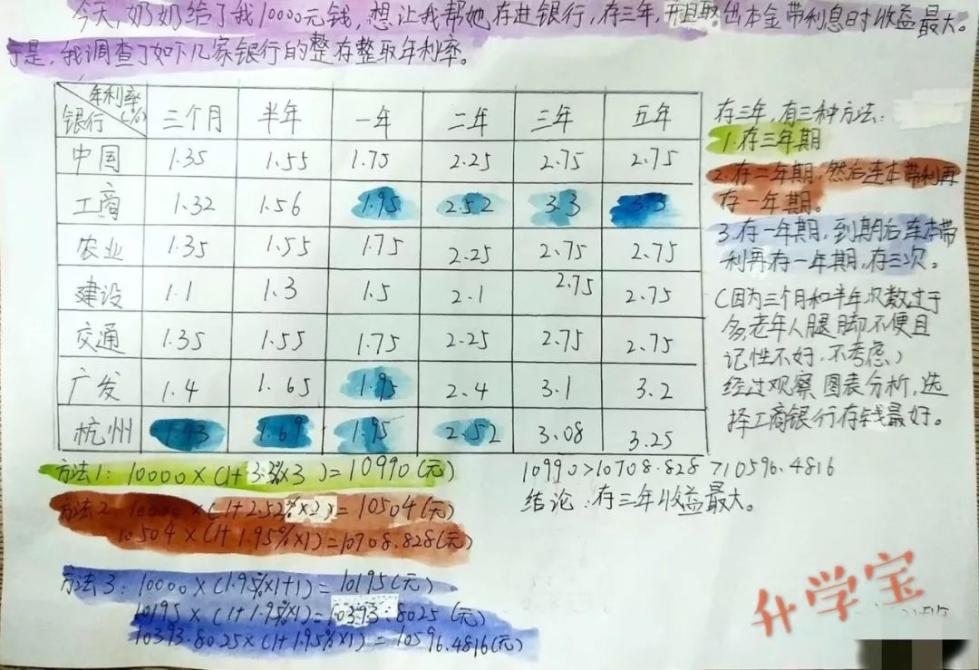 今天,奶奶给了我10000元钱,想让我帮她存进银行,存三年,并且取出本金带利息时收益最大。
于是,我调查了如下几家银行的整存整取年利率。
年利率(%) 银行 三个月 半年 一年 二年 三年 五年
中国 1.35 1.55 1.75 2.25 2.75 2.75
工商 1.32 1.56 1.95 2.52 3.3
农业 1.35 1.55 1.75 2.25 2.75 2.75
建设 1.1 1.3 1.5 2.1 2.75 2.75
交通 1.35 1.55 1.75 2.25 2.75 2.75
广发 1.4 1.65 1.95 2.4 3.1 3.2
杭州 1.43 1.69 1.95 2.52 3.08 3.25
存三年,有三种方法:
1.存三年期
2.存二年期,然后连本带利再
存一年期。
3.存一年期,到期后连本带
利再存一年期,存三次。
(因为三个月和半年次数过于
多,老年人腿脚不便且
记性不好,不考虑)
经过观察图表分析,选
择工商银行存钱最好。
方法1:10000×(1+3.3%×3)=10990(元)
方法2:10000×(1+2.52%×2)=10504(元)
10504×(1+1.95%×1)=10708.828(元)
方法3:10000×(1.95%×1+1)=10195(元)
10195×(1+1.95%×1)=10393.8025(元)
10393.8025×(1+1.95%×1)=10596.4816(元)
10990>10708.828>10596.4816
结论:存三年收益最大。
升学宝